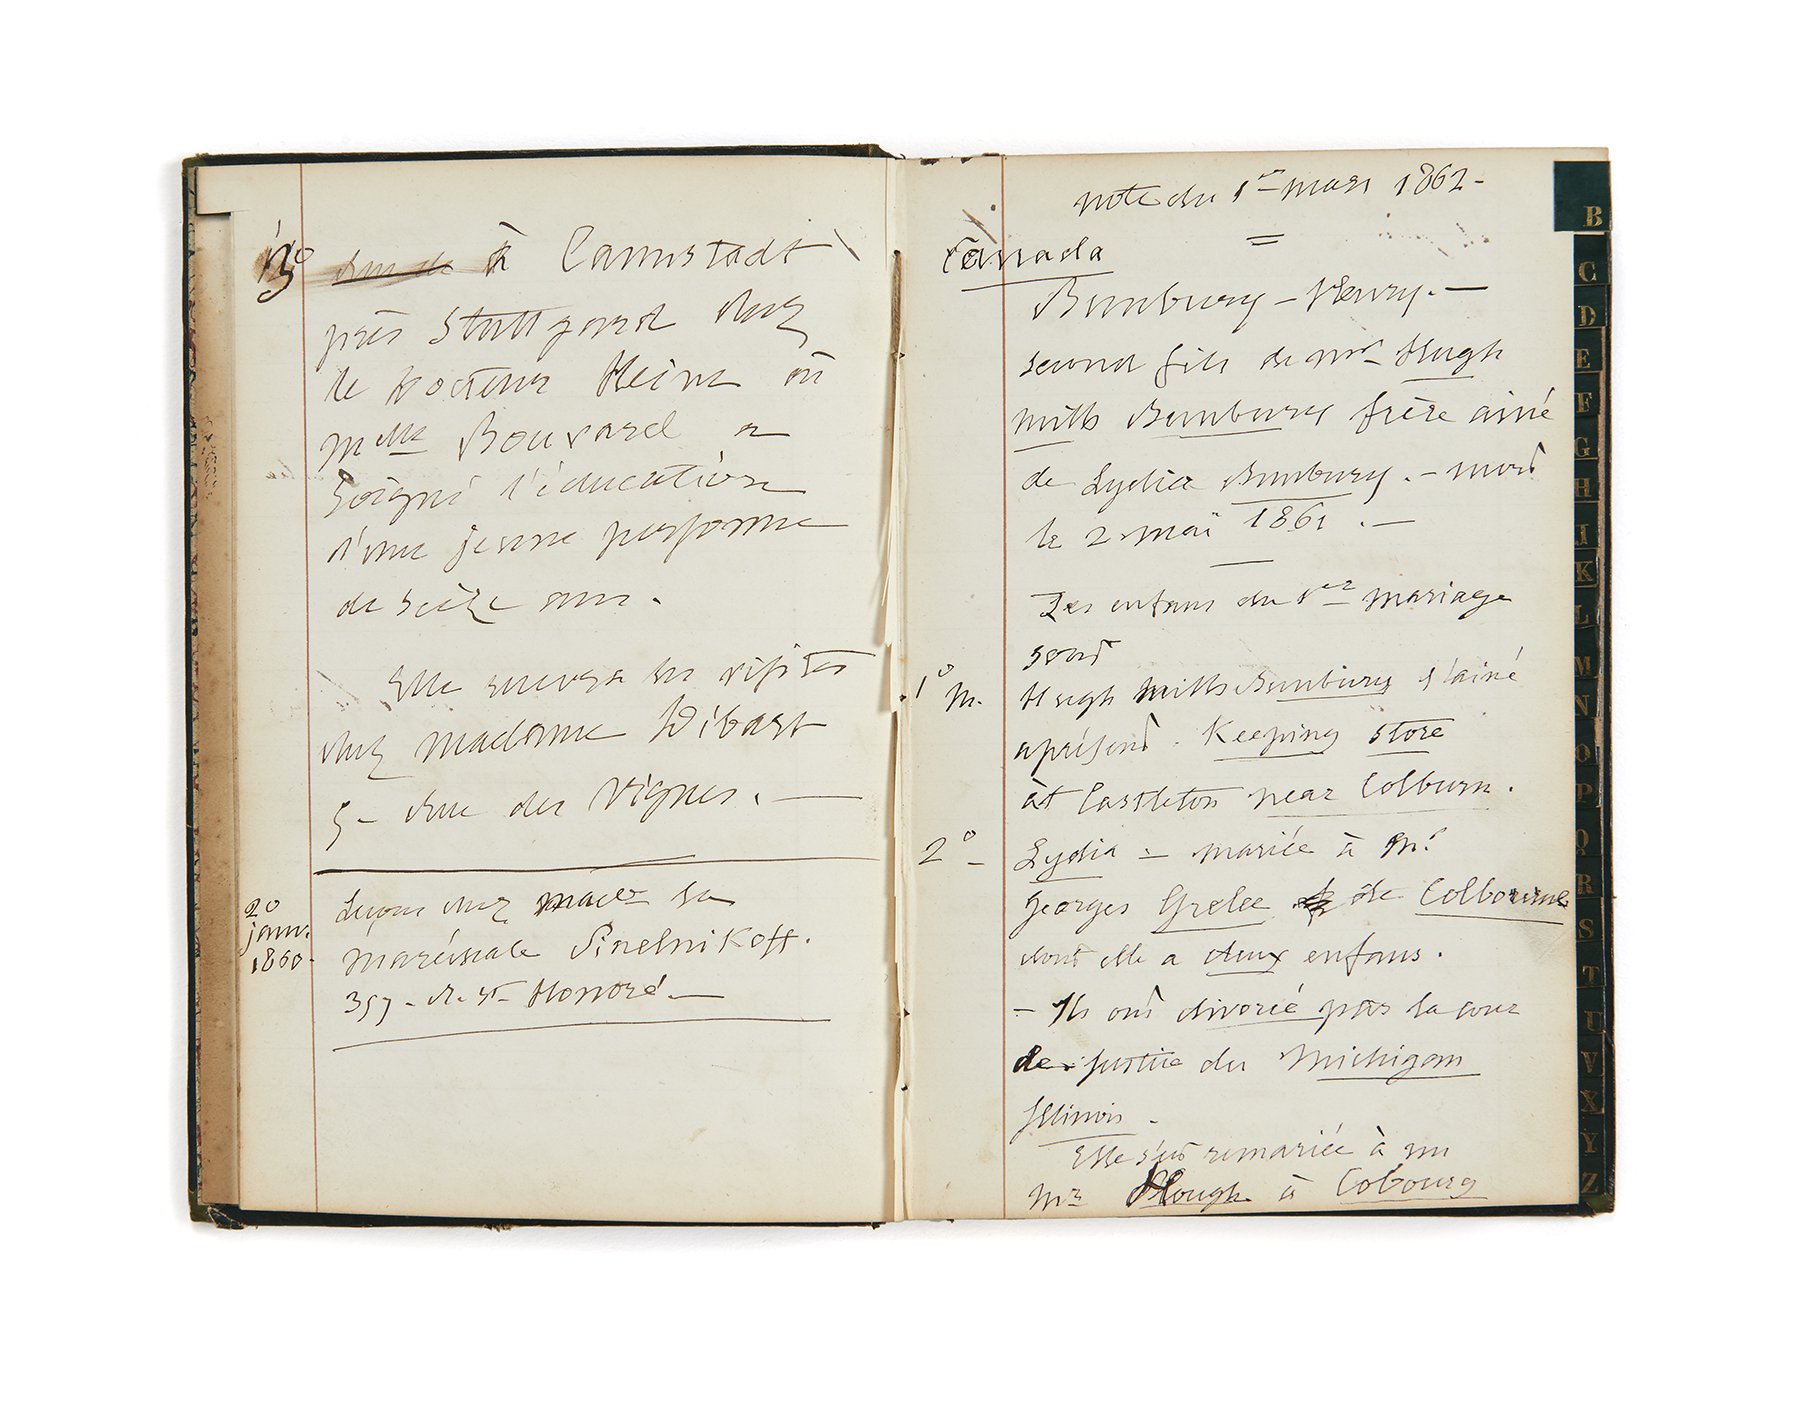 13° à Cannstadt
près Stuttgard chez
le Docteur Heine où
Melle Bouvard a
soigné l'éducation
d'une jeune personne
de seize ans.
Elle recevra les visites
chez madame Wibart
5 - rue des Vignes. —
20
janv.
1860.
Loge chez made la
maréchale Sinelnikoff.
357 - r. St Honoré —
note du 1er mars 1862 -
Canada
Bunbury - Henry. —
second fils de Mr Hugh
Mills Bunbury frère ainé
de Lydia Bunbury. - mort
le 2 mai 1861. —
Les enfans du 1er mariage
sont
1° M. Hugh Mills Bunbury l'ainé
aprésent. Keeping store
at Castleton near Colburn.
2° - Lydia - mariée à Mr
Georges Grelee de Colbourne
dont elle a deux enfans.
- Ils ont divorcé par la cour
de justice du Michigan
Illinois.
Elle s'est remariée à un
Mr Hough à Cobourg
B
C
D
E
F
G
H
I
K
L
M
N
O
P
Q
R
S
T
U
V
X
Y
Z